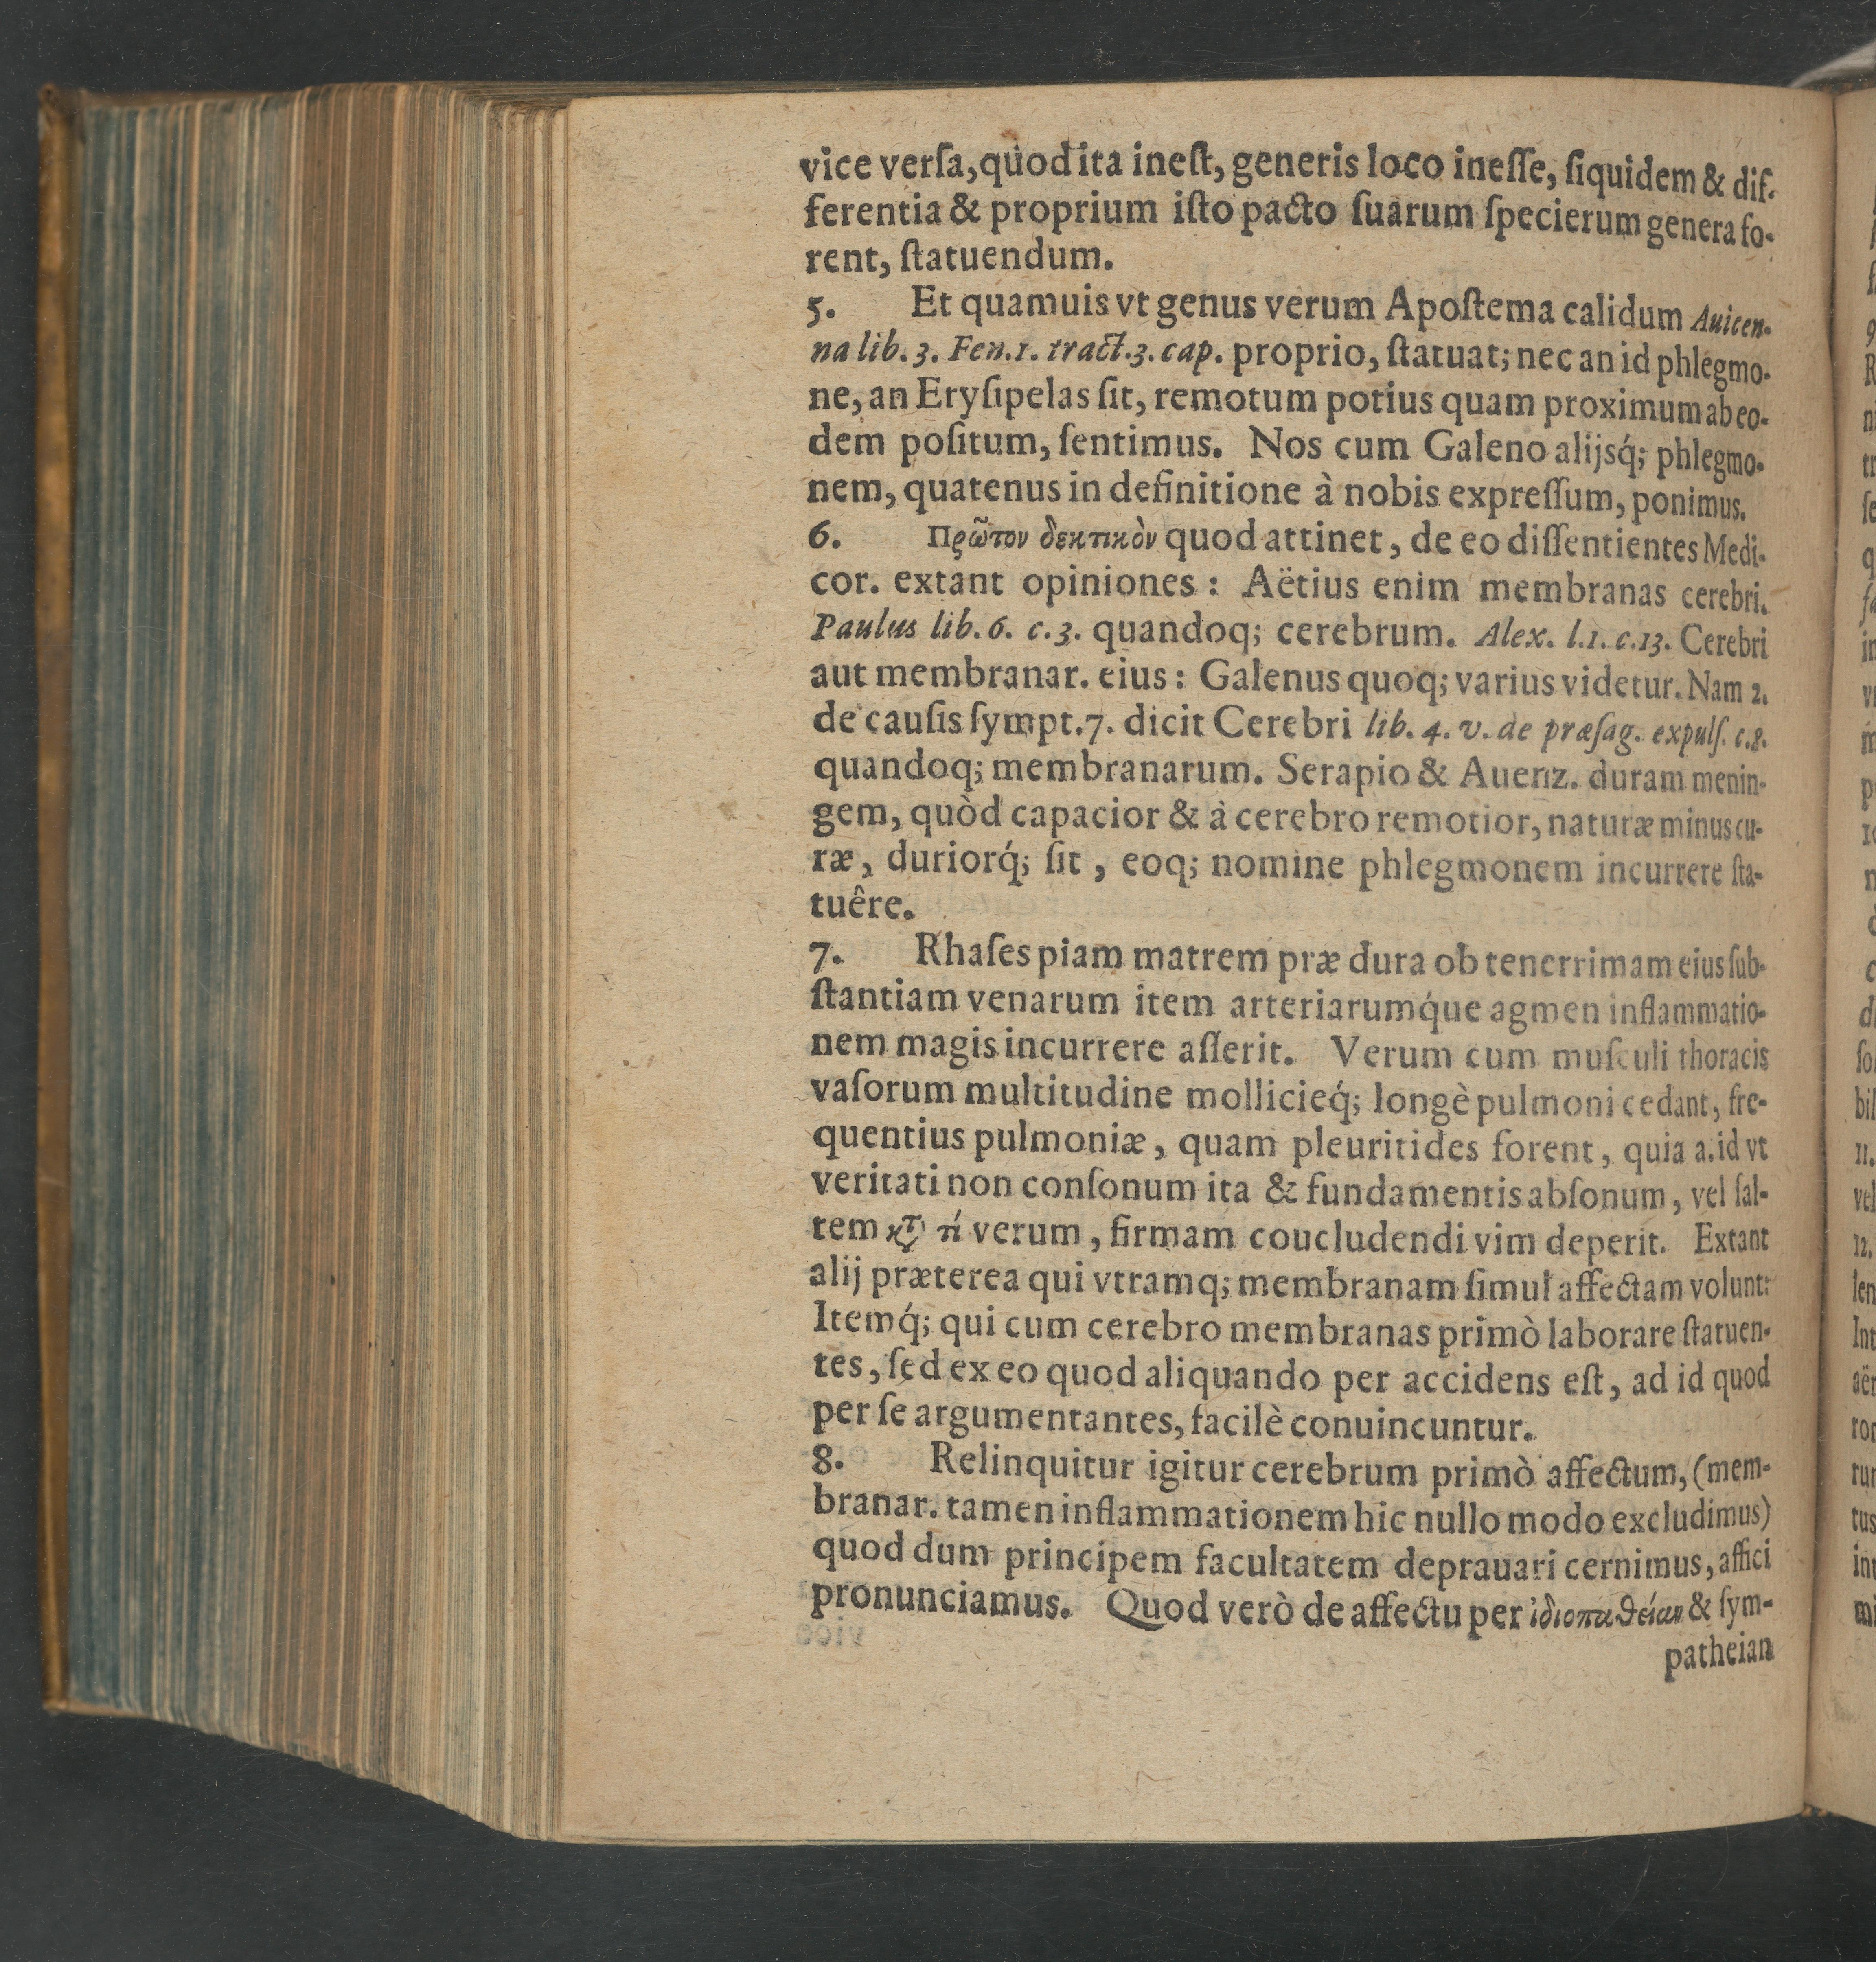 vice verſa, quòd ita ineſt, generis loco ineſſe, ſiquidem & dif-
ferentia & proprium iſto pacto ſuarum ſpecierum genera fo-
rent, ſtatuendum.
5. Et quamuis vt genus verum Apoſtema calidum Auicen-
na lib. 3. Fen. 1. tract. 3. cap. proprio, ſtatuat; nec an id phlegmo-
ne, an Eryſipelas ſit, remotum potius quam proximum ab eo-
dem poſitum, ſentimus. Nos cum Galeno alijsq́; phlegmo-
nem, quatenus in definitione à nobis expreſſum, ponimus.
6. Πρῶτον δεκτικὸν quod attinet, de eo diſſentientes Medi-
cor. extant opiniones: Aëtius enim membranas cerebri.
Paulus lib. 6. c. 3. quandoq; cerebrum. Alex. l. 1. c. 13. Cerebri
aut membranar. eius: Galenus quoq; varius videtur. Nam 2.
de cauſis ſympt. 7. dicit Cerebri lib. 4. v. de præſag. expulſ. c. 8.
quandoq; membranarum. Serapio & Auenz. duram menin-
gem, quòd capacior & à cerebro remotior, naturæ minus cu-
ræ, duriorq́; ſit, eoq; nomine phlegmonem incurrere ſta-
tuêre.
7. Rhaſes piam matrem præ dura ob tenerrimam eius ſub-
ſtantiam venarum item arteriarumq́ue agmen inflammatio-
nem magis incurrere aſſerit. Verum cum muſculi thoracis
vaſorum multitudine mollicieq́; longè pulmoni cedant, fre-
quentius pulmoniæ, quam pleuritides forent, quia a. id vt
veritati non conſonum ita & fundamentis abſonum, vel ſal-
tem τί verum, firmam coucludendi vim deperit. Extant
alij præterea qui vtramq; membranam ſimul affectam volunt:
Itemq́; qui cum cerebro membranas primò laborare ſtatuen-
tes, ſed ex eo quod aliquando per accidens eſt, ad id quod
per ſe argumentantes, facilè conuincuntur.
8. Relinquitur igitur cerebrum primò affectum, (mem-
branar. tamen inflammationem hic nullo modo excludimus)
quod dum principem facultatem deprauari cernimus, affici
pronunciamus. Quod verò de affectu per ἰδιοπαθείαν & ſym-
patheian